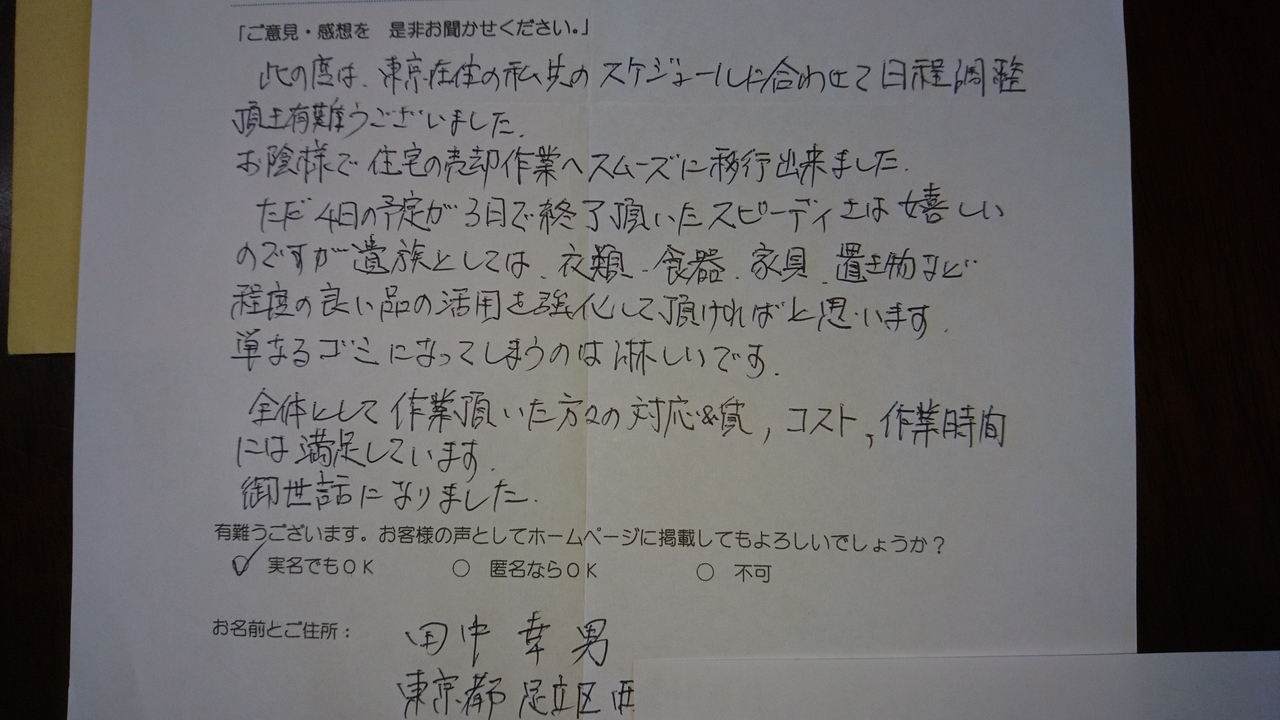 「ご意見・感想を　是非お聞かせください。」
此の度は、東京在住の私共のスケジュールに合わせて日程調整
頂き有難うございました。
お陰様で住宅の売却作業へスムーズに移行出来ました。
ただ4日の予定が3日で終了頂いたスピーディさは嬉しい
のですが遺族としては、衣類、食器、家具、置き物など
程度の良い品の活用を強化して頂ければと思います。
単なるゴミになってしまうのは淋しいです。
全体として作業頂いた方々の対応&質,コスト,作業時間
には満足しています。
御世話になりました。
有難うございます。お客様の声としてホームページに掲載してもよろしいでしょうか？
✓ 実名でもＯＫ　○ 匿名ならＯＫ　○ 不可
お名前とご住所：　田中 幸男
東京都 足立区 西